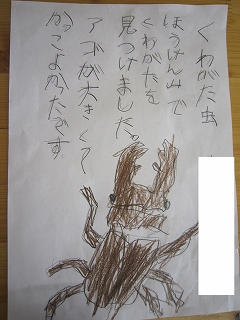 くわがた虫
ほうけん山で
くわがたを
見つけました。
アゴが大きくて
かっこよかったです